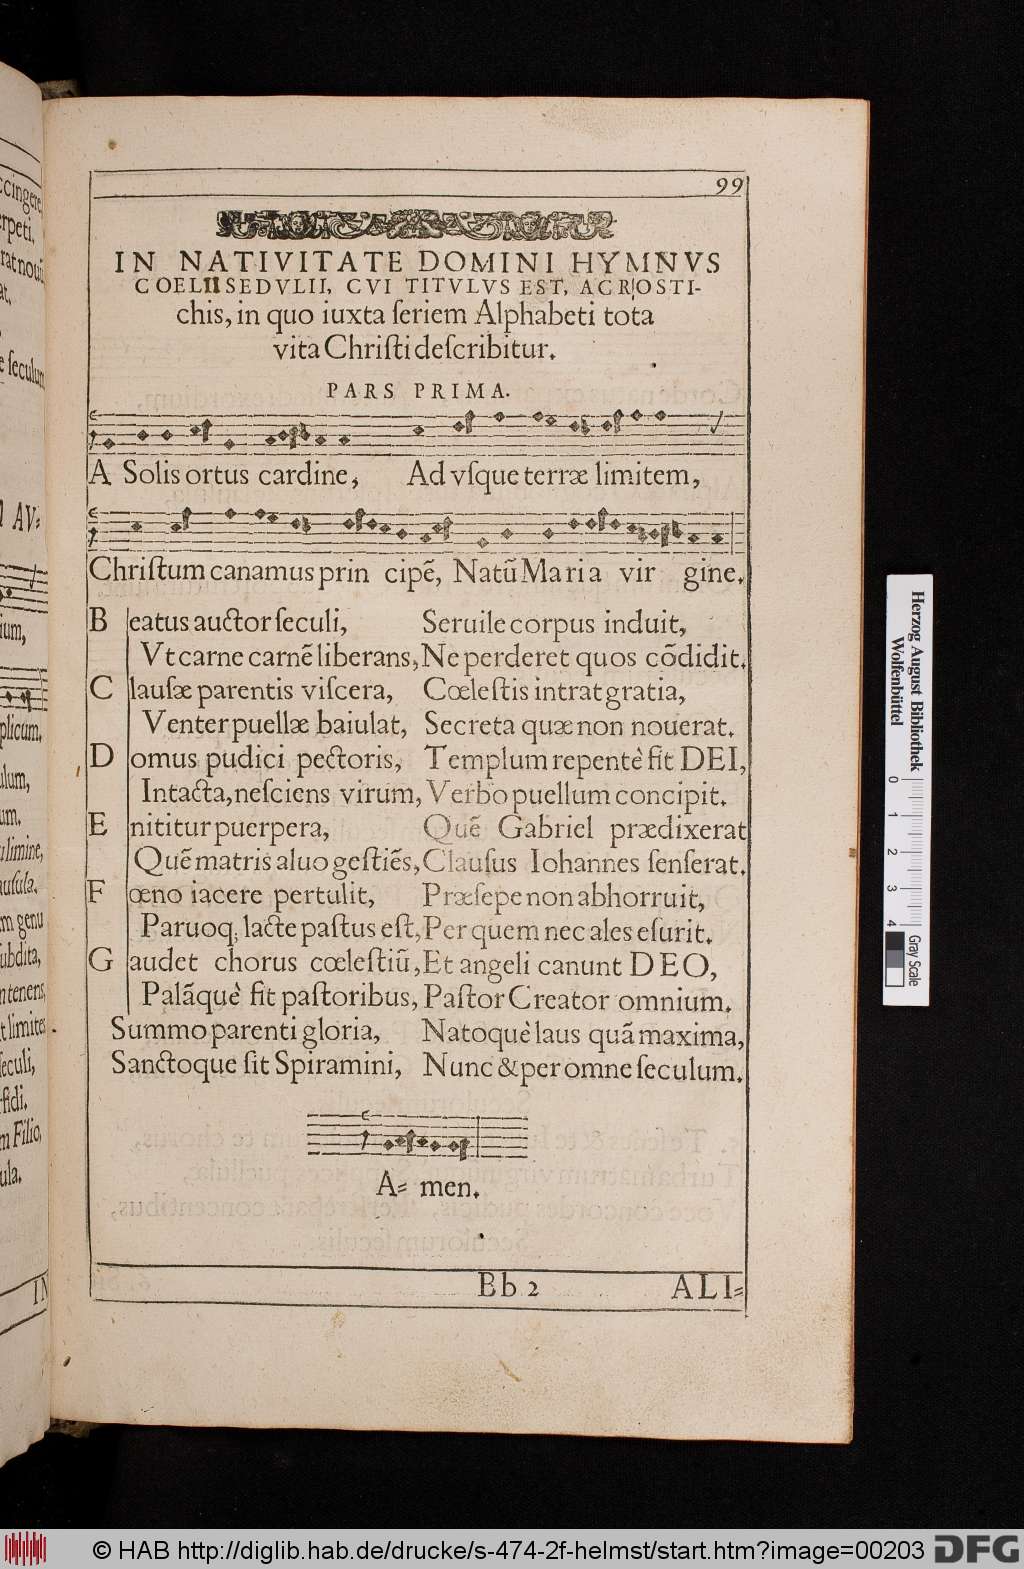 99
IN NATIVITATE DOMINI HYMNVS
COELII SEDVLII, CVI TITVLVS EST, ACROSTI-
chis, in quo iuxta ſeriem Alphabeti tota
vita Chriſti deſcribitur.
PARS PRIMA.
A Solis ortus cardine, Ad vſque terræ limitem,
Chriſtum canamus prin cipē, Natū Maria vir gine.
B eatus auctor ſeculi, Seruile corpus induit,
Vt carne carnē liberans, Ne perderet quos cōdidit.
C lauſæ parentis viſcera, Cœleſtis intrat gratia,
Venter puellæ baiulat, Secreta quæ non nouerat.
D omus pudici pectoris, Templum repentè fit DEI,
Intacta, neſciens virum, Verbo puellum concipit.
E nititur puerpera, Quē Gabriel prædixerat
Quē matris aluo geſtiēs, Clauſus Iohannes ſenſerat.
F œno iacere pertulit, Præſepe non abhorruit,
Paruoq; lacte paſtus eſt, Per quem nec ales eſurit.
G audet chorus cœleſtiū, Et angeli canunt DEO,
Palāquè fit paſtoribus, Paſtor Creator omnium.
Summo parenti gloria, Natoquè laus quā maxima,
Sanctoque ſit Spiramini, Nunc & per omne ſeculum.
A= men.
Bb 2 ALI=
ccingere
erpeti.
rat noui
at,
e ſeculum
AV=
ium,
plicum.
ulum,
um.
limine,
uſula.
m genu
ſubdita,
ntenens,
t limites
ſeculi,
fidi.
m Filio,
ula.
IN
Herzog August Bibliothek
Wolfenbüttel
0 1 2 3 4
Gray Scale
© HAB http://diglib.hab.de/drucke/s-474-2f-helmst/start.htm?image=00203 DFG